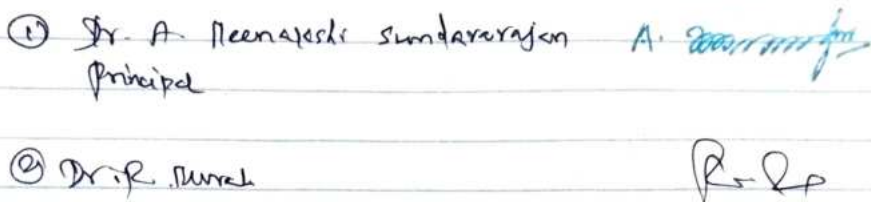 ① Dr. A. Meenakshi Sundararajan A.
Principal
② Dr. R. Murali